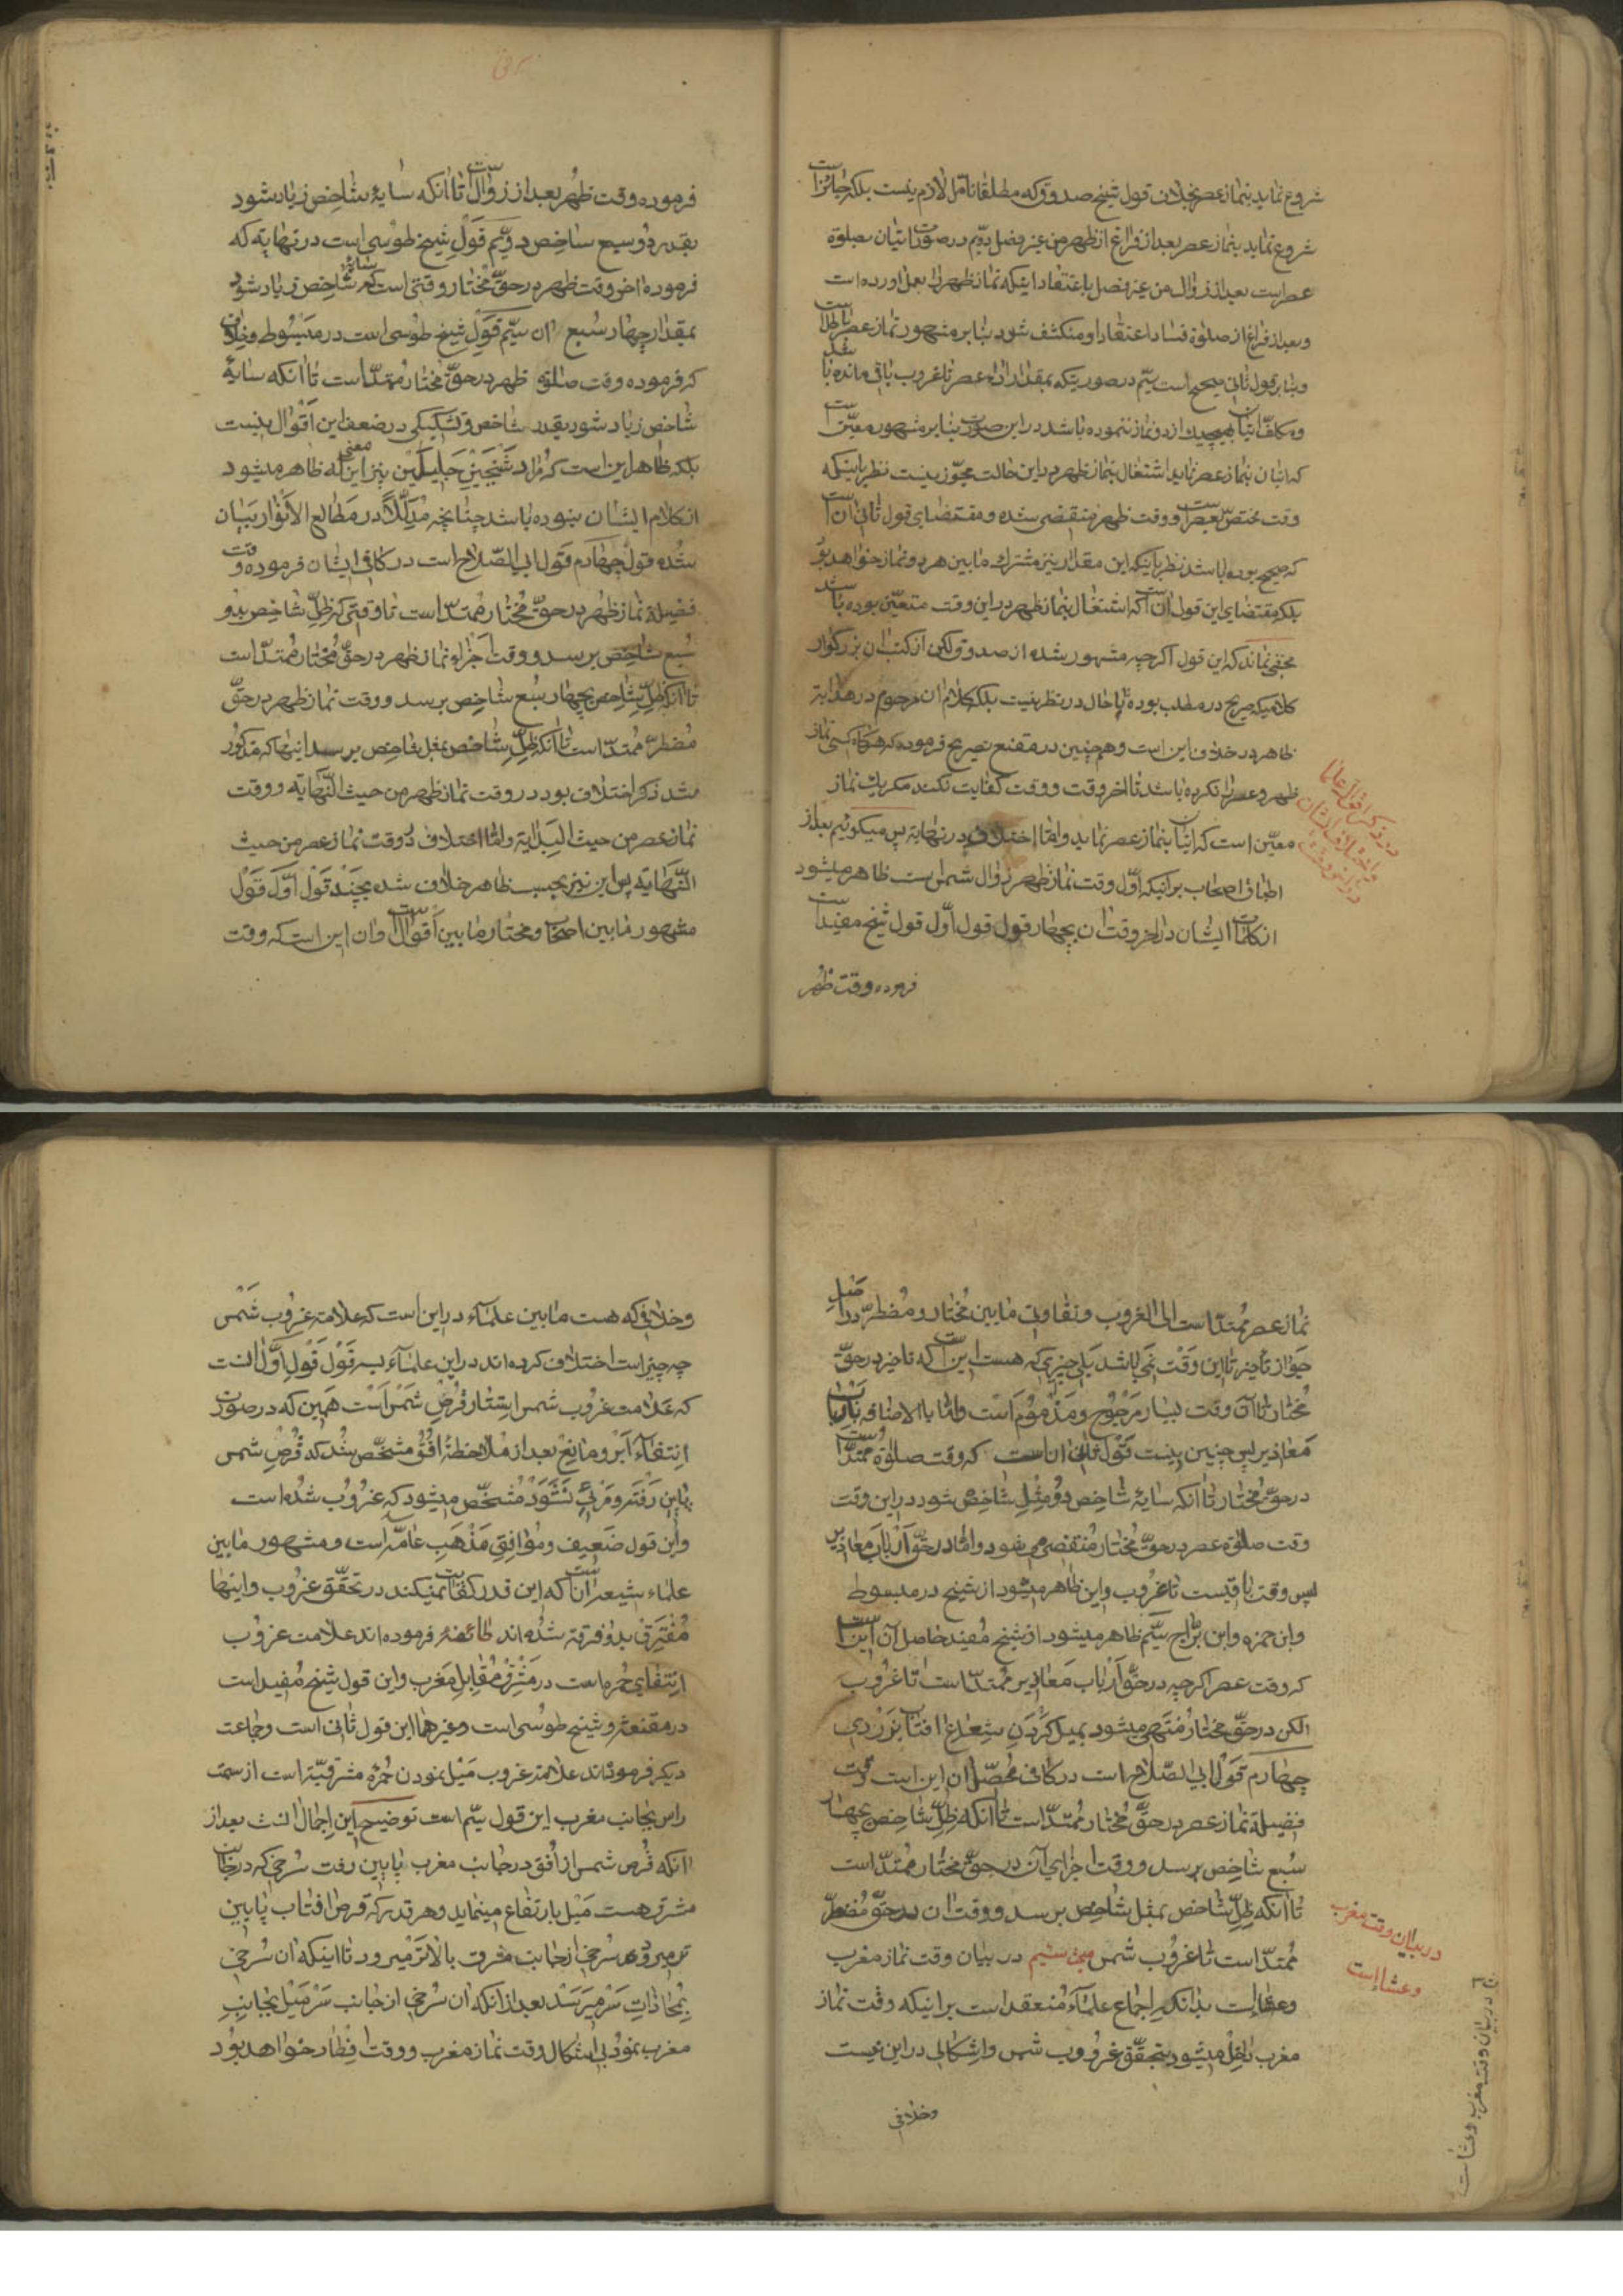 شروع نماید بنماز عصر بخلاف قول شیخ صدوق که مطلقا تامل لازم نیست بلکه جایز است
شروع نماید بنماز عصر بعد از فراغ از ظهر من غیر فصل دویّم در صورت اتیان بصلوة
عصر است بعد از زوال من غیر فصل باعتقاد اینکه نماز ظهر را بعمل اورده است
و بعد از فراغ از صلوة فساد اعتقاد او منکشف شود بنابر مشهور نماز عصر باطل است
و بنابر قول ثانی صحیح است سیّم در صورتیکه بمقدار اداء عصر تا غروب باقی مانده باشد
و مکلف اتیان بهیچیک از دو نماز ننموده باشد در این صورت بنابر مشهور معیّن است
که اتیان بنماز عصر نماید اشتغال بنماز ظهر در این حالت مجوّز نیست نظر باینکه
وقت مختصّ بعصر است و وقت ظهر منقضی شده و مقتضای قول ثانی ان است
که صحیح بوده باشد نظر باینکه این مقدار نیز مشترک مابین هر دو نماز خواهد بود
بلکه مقتضای این قول ان است که اشتغال بنماز ظهر در این وقت متعیّن بوده باشد
مخفی نماند که این قول اگرچه مشهور شده از صدوق و لکن از کتب ان بزرگوار
کلامیکه صریح در مطلب بوده تا حال در نظر نیست بلکه کلام ان مرحوم در هدایة
ظاهر در خلاف این است و همچنین در مقنع تصریح فرموده که هرگاه کسی نماز
ظهر و عصر را نکرده باشد تا اخر وقت و وقت کفایت نکند مگر یک نماز
معیّن است که اتیان بنماز عصر نماید و امّا اختلاف در نهایة پس میگوئیم بعد از
اطباق اصحاب بر اینکه اوّل وقت نماز ظهر زوال شمس است ظاهر میشود
از کلمات ایشان در اخر وقت ان چهار قول قول اوّل قول شیخ مفید است
فرموده وقت ظهر
در ذکر اقوال علما
و اختلاف ایشان
در اخر وقت
فرموده وقت ظهر بعد از زوال است تا انکه سایهٔ شاخص زیاد شود
بقدر دو سبع شاخص دویّم قول شیخ طوسی است در نهایة که
فرموده اخر وقت ظهر در حقّ مختار وقتی است که سایهٔ شاخص زیاد شود
بمقدار چهار سبع ان سیّم قول شیخ طوسی است در مبسوط و خلاف
که فرموده وقت صلوة ظهر در حقّ مختار ممتدّ است تا انکه سایهٔ
شاخص زیاد شود بقدر شاخص و تشکیکی در ضعف این اقوال نیست
بلکه ظاهر این است که مراد شیخین جلیلین نیز این معنی که ظاهر میشود
از کلام ایشان نبوده باشد چنانچه مدلّلاً در مطالع الأنوار بیان
شده قول چهارم قول ابی الصّلاح است در کافی ایشان فرموده وقت
فضیلة نماز ظهر در حقّ مختار ممتدّ است تا وقتی که ظلّ شاخص بدو
سبع شاخص برسد و وقت اجزاء نماز ظهر در حقّ مختار ممتدّ است
تا انکه ظلّ شاخص بچهار سبع شاخص برسد و وقت نماز ظهر در حقّ
مضطرّ ممتدّ است تا انکه ظلّ شاخص بمثل شاخص برسد اینها که مذکور
شد ذکر اختلاف بود در وقت نماز ظهر من حیث النّهایة و وقت
نماز عصر من حیث البدایة و امّا اختلاف در وقت نماز عصر من حیث
النّهایة پس این نیز بحسب ظاهر خلاف شده بچند قول اوّل قول
مشهور مابین اصحاب و مختار مابین اقوال است و ان این است که وقت
نماز عصر ممتدّ است الی الغروب و تفاوتی مابین مختار و مضطرّ در اصل
جواز تاخیر تا این وقت نمی باشد بلی چیزی که هست این است که تاخیر در حقّ
مختار تا آن وقت بسیار مرجوح و مذموم است و امّا بالاضافه بارباب
معاذیر پس چنین نیست قول ثانی ان است که وقت صلوة ممتدّ است
در حقّ مختار تا انکه سایهٔ شاخص دو مثل شاخص شود در این وقت
وقت صلوة عصر در حقّ مختار منقضی می شود و امّا در حقّ ارباب معاذیر
پس وقت باقیست تا غروب و این ظاهر میشود از شیخ در مبسوط
و ابن حمزه و ابن برّاج سیّم ظاهر میشود از شیخ مفید حاصل آن این است
که وقت عصر اگرچه در حقّ ارباب معاذیر ممتدّ است تا غروب
لکن در حقّ مختار منتهی میشود بمیل کردن شعاع افتاب بزردی
چهارم قول ابی الصّلاح است در کافی محصّل ان این است وقت
فضیلة نماز عصر در حقّ مختار ممتدّ است تا انکه ظلّ شاخص بچهار
سبع شاخص برسد و وقت اجزای آن در حقّ مختار ممتدّ است
تا انکه ظلّ شاخص بمثل شاخص برسد و وقت ان در حقّ مضطرّ
ممتدّ است تا غروب شمس مبحث سیّم در بیان وقت نماز مغرب
و عشا است بدانکه اجماع علماء منعقد است بر اینکه وقت نماز
مغرب داخل میشود بتحقّق غروب شمس و اشکالی در این نیست
وخلافی
در بیان وقت مغرب
و عشا است
در بیان وقت مغرب و عشا است
وخلافی که هست مابین علماء در این است که علامة غروب شمس
چه چیز است اختلاف کرده اند در این علماء بسه قول قول اوّل انست
که علامت غروب شمس استتار قرص شمس است همین که در صورت
انتفاء ابر و مانع بعد از ملاحظهٔ افق مشخّص شد که قرص شمس
پایین رفته و مرئی نشود مشخّص میشود که غروب شده است
و این قول ضعیف و موافق مذهب عامّه است و مشهور مابین
علماء شیعه ان است که این قدر کفایت نمیکند در تحقّق غروب و اینها
مفترق بدو فرقه شده اند طائفهٔ فرموده اند علامت غروب
انتفای حمره است در مشرق مقابل مغرب و این قول شیخ مفید است
در مقنعه و شیخ طوسی است و غیرهما این قول ثانی است و جماعت
دیگر فرموده اند علامة غروب میل نمودن حمرهٔ مشرقیّه است از سمت
راس بجانب مغرب این قول سیّم است توضیح این اجمال انست بعد از
انکه قرص شمس از افق در جانب مغرب پایین رفت سرخی که در جانب
مشرق هست میل بارتفاع مینماید و هر قدر که قرص افتاب پایین
تر میرود سرخی از جانب مشرق بالاتر میرود تا اینکه ان سرخی
بمحاذات سر میرسد بعد از انکه ان سرخی از جانب سر میل بجانب
مغرب نمود بی اشکال وقت نماز مغرب و وقت افطار خواهد بود